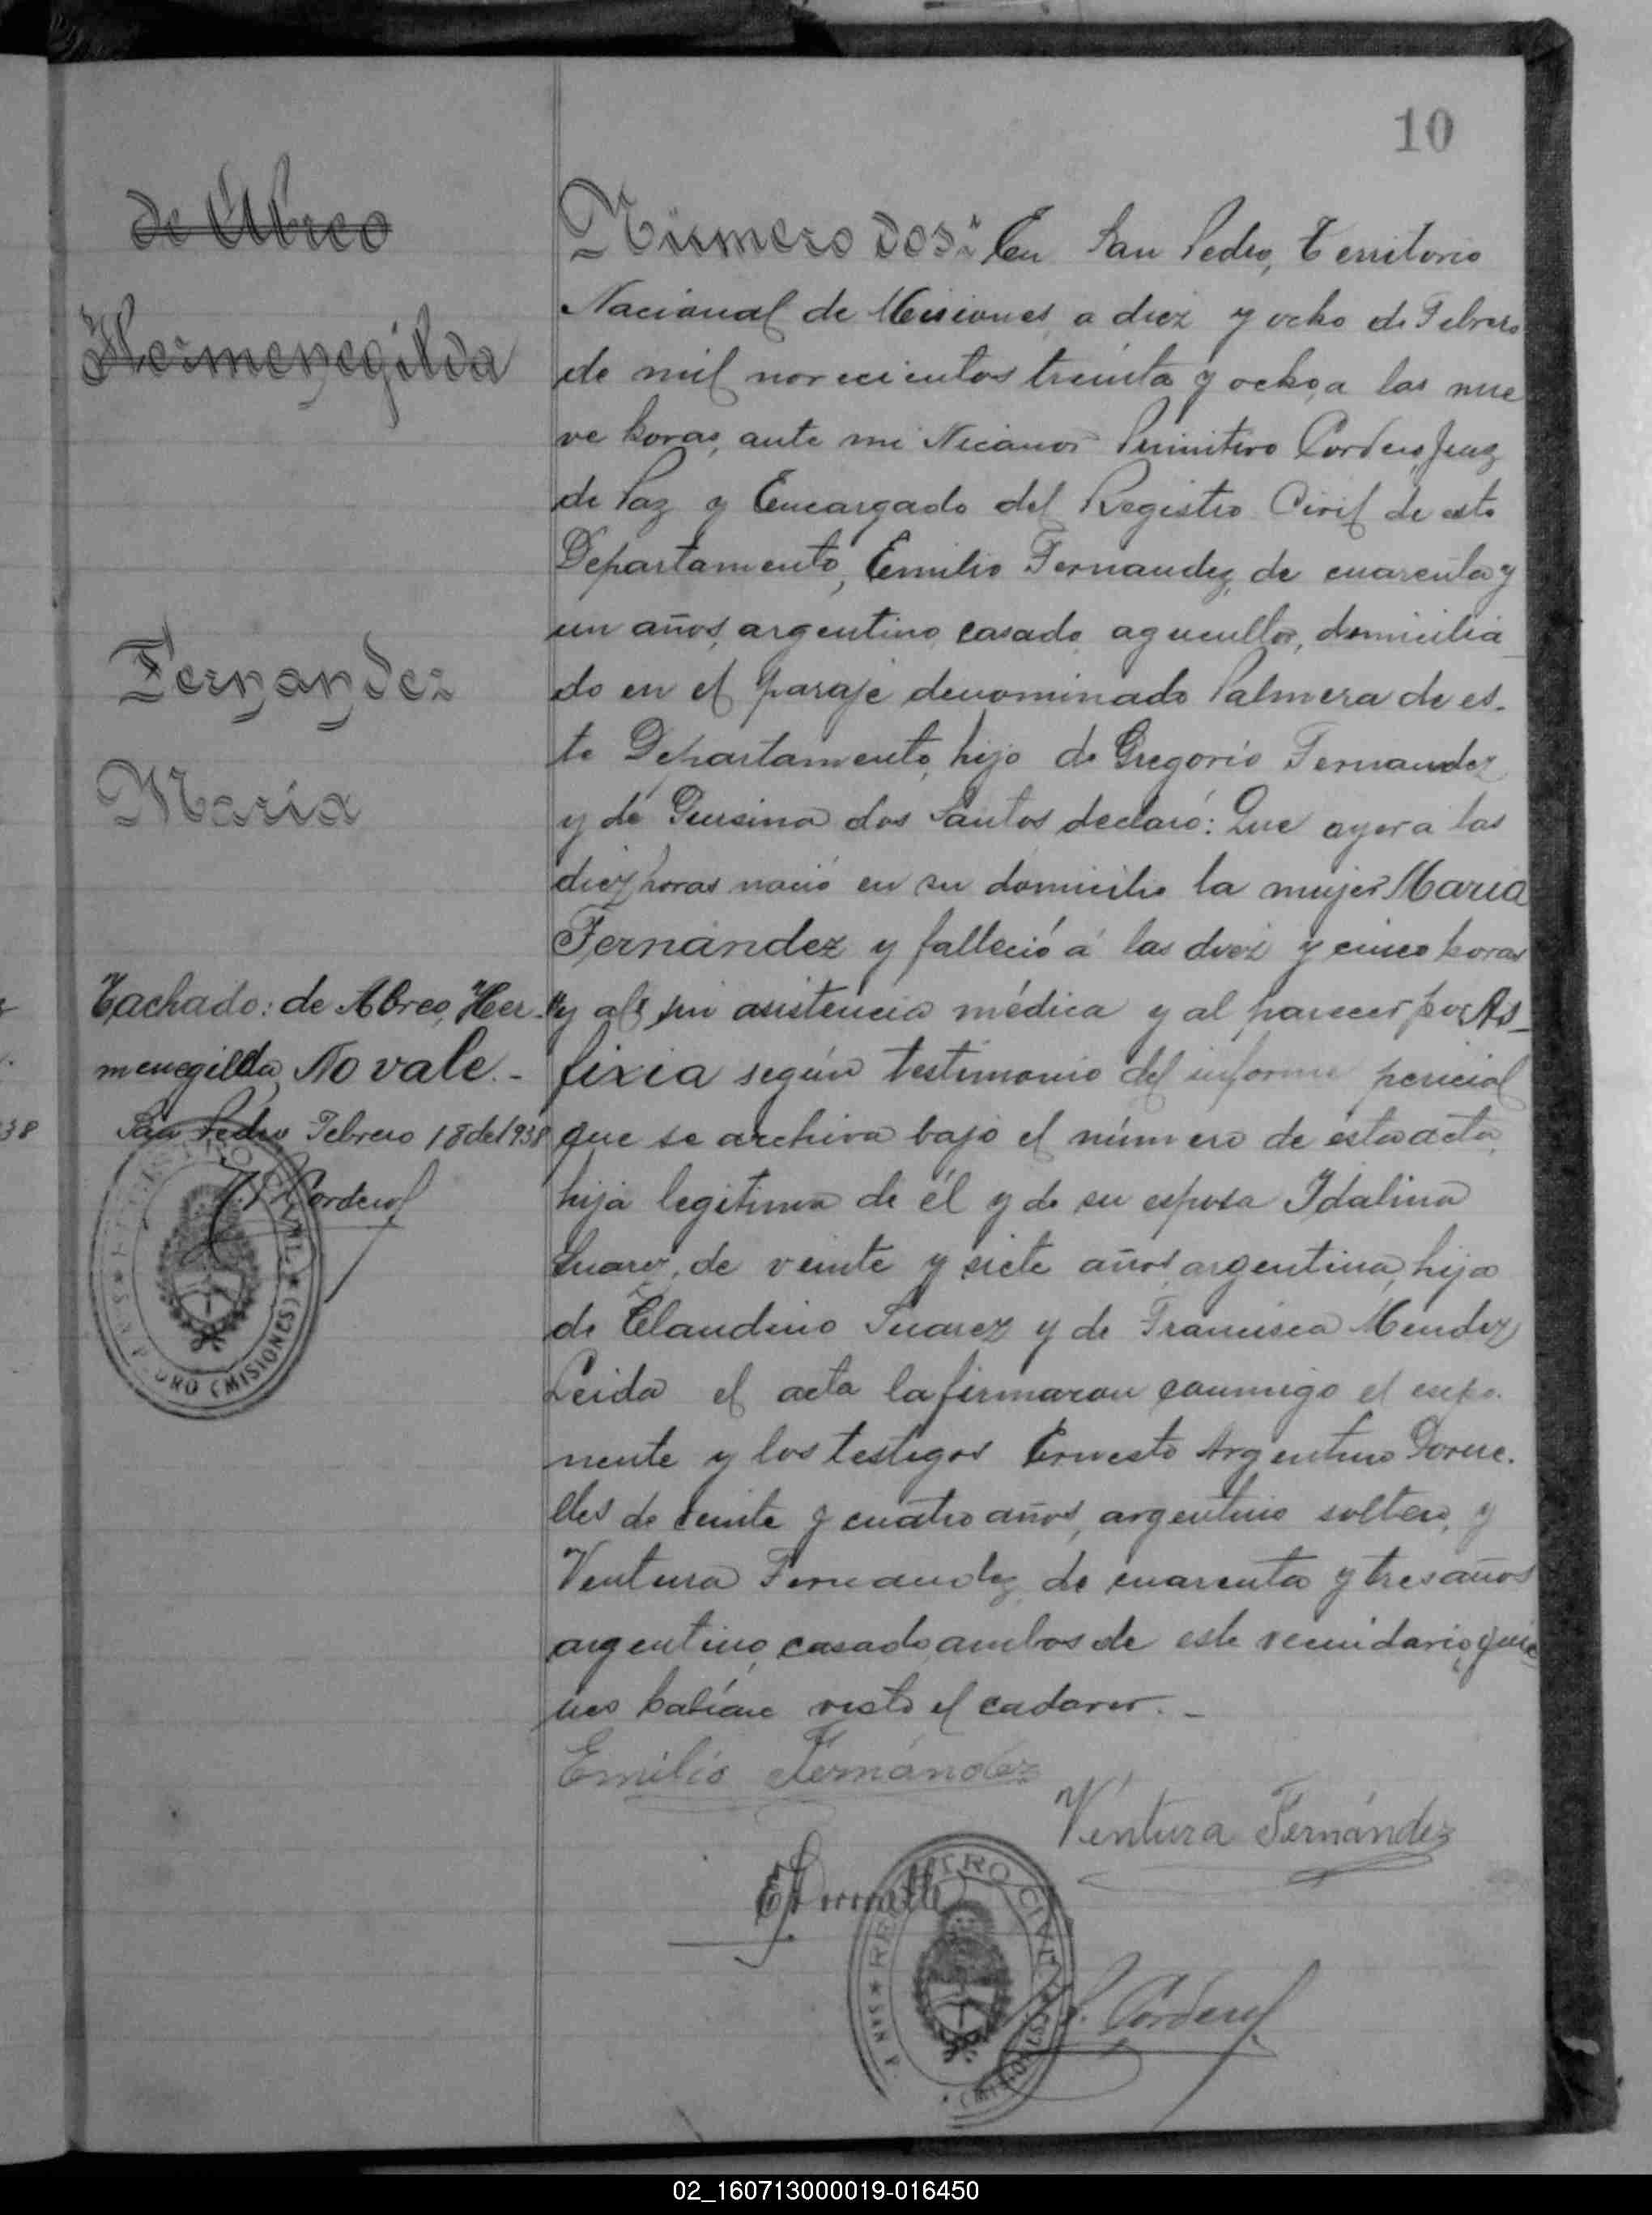 10
de Abreo
Hermenegilda
Fernandez
María
Tachado: de Abreo, Her-
menegilda, No vale.-
San Pedro Febrero 18 de 1938
Cordero
Número dos: En San Pedro, Territorio
Nacional de Misiones, a diez y ocho de Febrero
de mil novecientos treinta y ocho, a las nue
ve horas, ante mi Nicanor Primitivo Cordero, Juez
de Paz y Encargado del Registro Civil de este
Departamento, Emilio Fernandez, de cuarenta y
un años, argentino, casado, agricultor, domicilia
do en el paraje denominado Palmera de es-
te Departamento, hijo de Gregorio Fernandez
y de dos Santos declaró: Que ayer a las
diez horas nació en su domicilio la mujer María
Fernández y falleció á las diez y cinco horas
sin asistencia médica y al parecer por As-
fixia según testimonio del informe pericial
que se archiva bajo el número de esta acta,
hija legitima de él y de su esposa Idalina
Suarez, de veinte y siete años, argentina, hija
de Claudino Suarez y de Francisca Mendez
Leida el acta la firmaron conmigo el expo-
nente y los testigos Ernesto Argentino Dorne-
lles de veinte y cuatro años, argentino soltero, y
Ventura Fernandez, de cuarenta y tres años
argentino, casado, ambos de este vecindario, quie
nes habían visto el cadaver.-
Emilio Fernández
Ventura Fernández
REGISTRO CIVIL
SAN P
(MISIONES)
P. Cordero
02_160713000019-016450